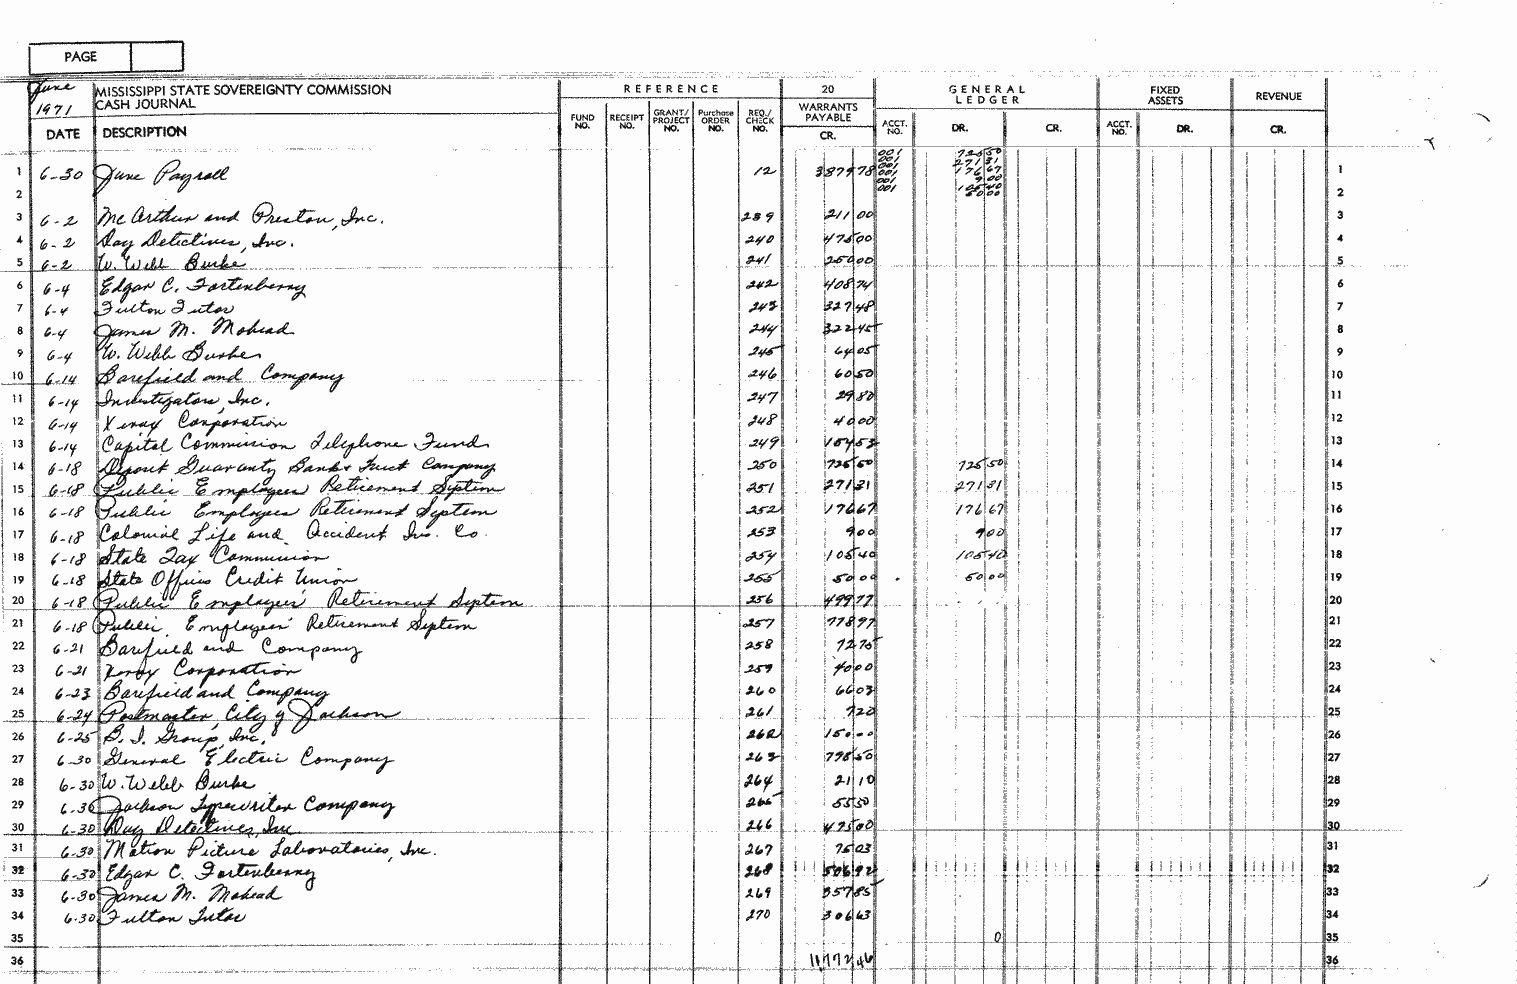 PAGE
June 1971 MISSISSIPPI STATE SOVEREIGNTY COMMISSION REFERENCE 20 GENERAL LEDGER FIXED ASSETS REVENUE
CASH JOURNAL
DATE DESCRIPTION FUND NO. RECEIPT NO. GRANT/PROJECT NO. Purchase ORDER NO. REQ./CHECK NO. WARRANTS PAYABLE CR. ACCT. NO. DR. CR. ACCT. NO. DR. CR.
001 725 50
001 271 31
1 6-30 June Payroll 12 3879 78 001 176 67 1
001 9 00
001 105 40
2 50 00 2
3 6-2 McArthur and Preston, Inc. 239 211 00 3
4 6-2 Day Detectives, Inc. 240 475 00 4
5 6-2 W. Webb Burke 241 250 00 5
6 6-4 Edgar C. Fortenberry 242 408 74 6
7 6-4 Fulton Tutor 243 327 48 7
8 6-4 James M. Mohead 244 322 45 8
9 6-4 W. Webb Burke 245 64 05 9
10 6-14 Barefield and Company 246 60 50 10
11 6-14 Investigators, Inc. 247 29 80 11
12 6-14 Xerox Corporation 248 40 00 12
13 6-14 Capital Commission Telephone Fund 249 154 53 13
14 6-18 Deposit Guaranty Bank & Trust Company 250 725 50 725 50 14
15 6-18 Public Employees Retirement System 251 271 31 271 31 15
16 6-18 Public Employees Retirement System 252 176 67 176 67 16
17 6-18 Colonial Life and Accident Ins. Co. 253 9 00 9 00 17
18 6-18 State Tax Commission 254 105 40 105 40 18
19 6-18 State Offices Credit Union 255 50 00 50 00 19
20 6-18 Public Employees' Retirement System 256 499 77 20
21 6-18 Public Employees' Retirement System 257 778 97 21
22 6-21 Barefield and Company 258 72 75 22
23 6-21 Xerox Corporation 259 40 00 23
24 6-23 Barefield and Company 260 66 03 24
25 6-24 Postmaster, City of Jackson 261 7 20 25
26 6-25 B. I. Group, Inc. 262 150 00 26
27 6-30 General Electric Company 263 798 50 27
28 6-30 W. Webb Burke 264 21 10 28
29 6-30 Jackson Typewriter Company 265 55 50 29
30 6-30 Day Detectives, Inc 266 475 00 30
31 6-30 Motion Picture Laboratories, Inc. 267 75 03 31
32 6-30 Edgar C. Fortenberry 268 506 92 32
33 6-30 James M. Mohead 269 357 85 33
34 6-30 Fulton Tutor 270 306 63 34
35 0 35
36 11,772 46 36